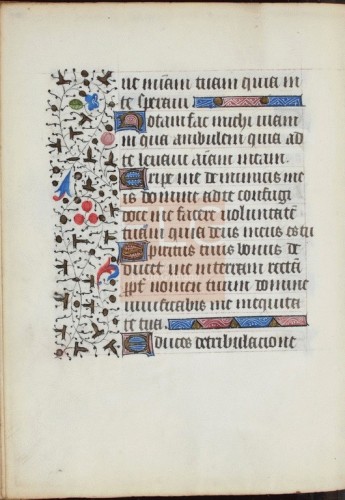 ne miam tuam quia in
te speravi
Notam fac michi viam
in qua ambulem quia ad
te levavi aiam meam.
Eripe me de inimicis me
is domine ad te confugi
doce me facere voluntatē
tuam quia deus meus es tu
Spiritus tuus bonus de
ducet me in terram rectā
ppt nomen tuum domine
vivificabis me in equita
te tua.
Educes de tribulacione